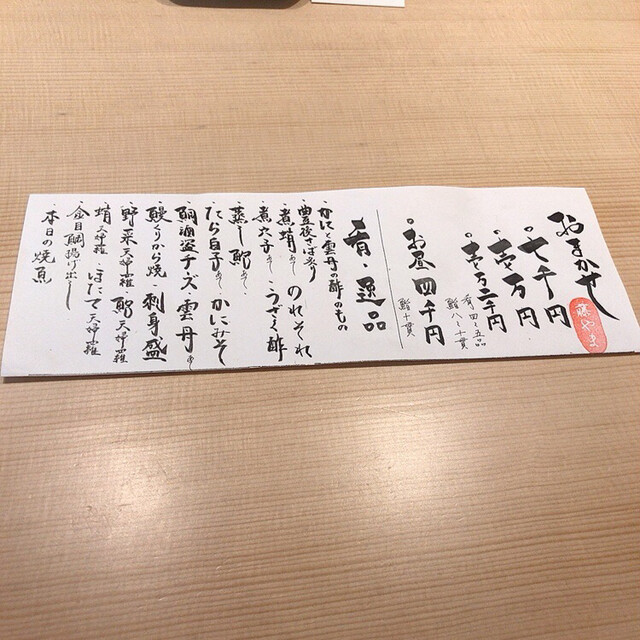 おまかせ
藤やま
・七千円
・壱万円
・壱万二千円
肴 四〜五品
鮨 八〜十貫
・お昼 四千円
鮨十貫
肴 逸品
・かにと雲丹の酢のもの
・豊後さば炙り
・煮蛸 のれそれ
・煮穴子 うざく酢
・蒸し鮑
・たら白子 かにみそ
・鯛酒盗チーズ 雲丹
・鰻くりから焼 ・刺身盛
・野菜天婦羅 鮑天婦羅
・蛸天婦羅 ほたて天婦羅
・金目鯛揚げ出し
・本日の焼魚